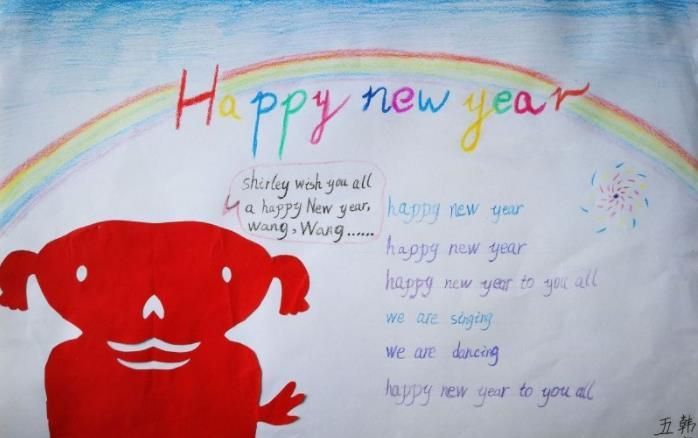 Happy new year
shirley wish you all
a happy New year,
wang, Wang......
happy new year
happy new year
happy new year to you all
we are singing
we are dancing
happy new year to you all
五 韩